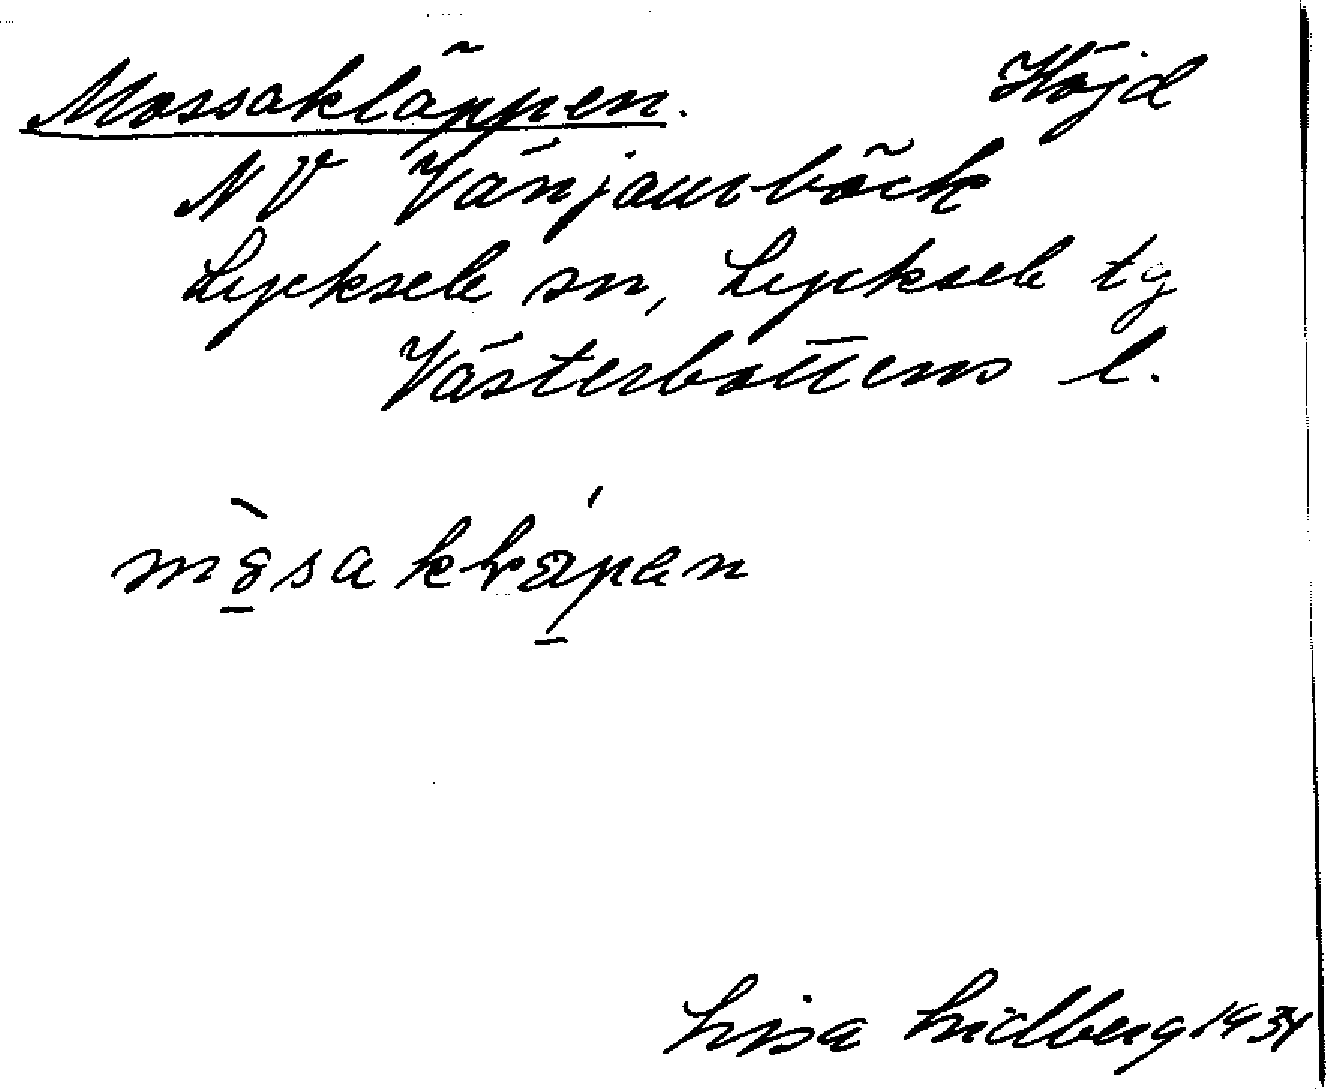 Mossakläppen. Höjd
NV Vänjaurbäck
Lycksele sn, Lycksele tg
Västerbottens l.
Lisa Lidberg 1934